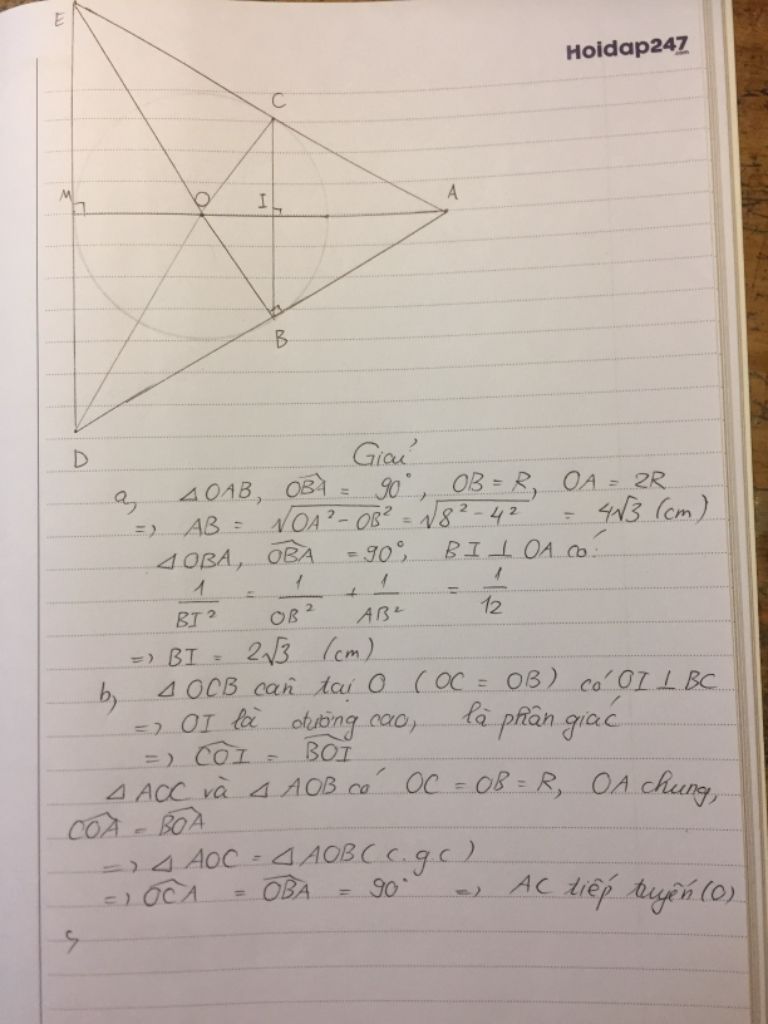 E
Hoidap247
.com
C
M
O
I
A
B
D
Giải
a, △OAB, \widehat{OBA} = 90°, OB = R, OA = 2R
=> AB = √(OA² - OB²) = √(8² - 4²) = 4√3 (cm)
△OBA, \widehat{OBA} = 90°, BI ⊥ OA có:
1/BI² = 1/OB² + 1/AB² = 1/12
=> BI = 2√3 (cm)
b, △OCB cân tại O (OC = OB) có OI ⊥ BC
=> OI là đường cao, là phân giác
=> \widehat{COI} = \widehat{BOI}
△AOC và △AOB có OC = OB = R, OA chung,
\widehat{COA} = \widehat{BOA}
=> △AOC = △AOB (c.g.c)
=> \widehat{OCA} = \widehat{OBA} = 90° => AC tiếp tuyến (O)